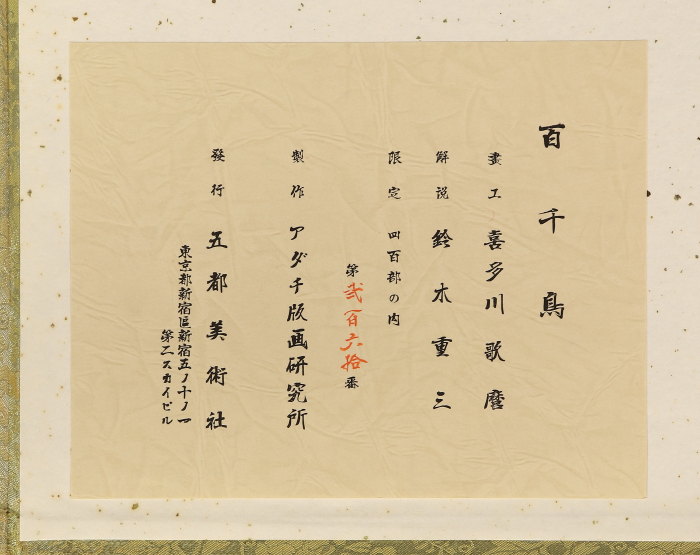 百千鳥
畫工 喜多川歌麿
解説 鈴木重三
限定 四百部の内
第弐百六拾番
製作 アダチ版画研究所
發行 五都美術社
東京都新宿區新宿五ノ十ノ一
第二スカイビル